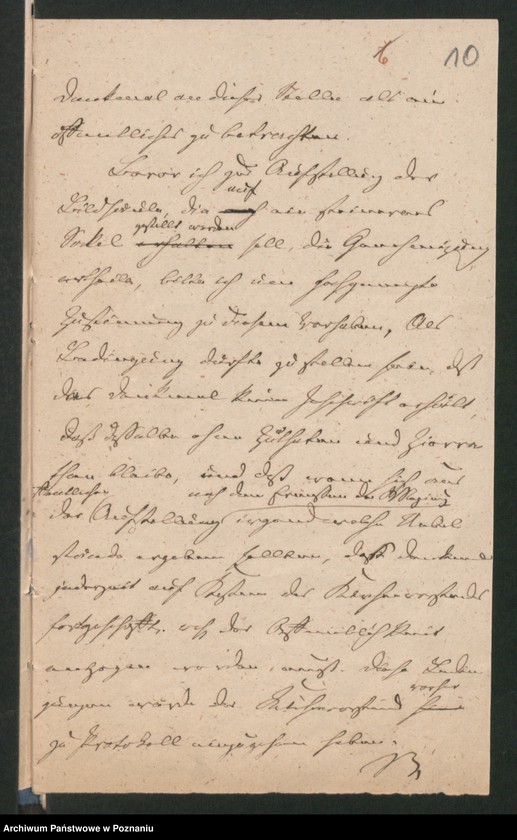 6 10
Denkmal an dieser Stelle als ein
öffentliches zu betrachten.
Bevor ich zur Aufstellung der
auf
Bildsäule, die ein steinernes
gestellt werden
Sockel erhalten soll, die Genehmigung
ertheile, bitte ich um
Zustimmung zu diesem Vorhaben. Als
Bedingung dürfte zu stellen sein, daß
das Denkmal keine Inschrift erhält,
daß dasselbe ohne Zuthaten und Zierra
then bleibe, und daß, wenn sich aus
öffentlichen nach dem Ermessen der Regierung
der Aufstellung irgend welche Uebel
stände ergeben sollten, das Denkmal
jederzeit auf Kosten des Kirchenvorstandes
fortgeschafft, der Oeffentlichkeit
entzogen werden muß. Diese Bedin
vorher
gungen würde der Kirchenvorstand
zu Protokoll anzugeben haben.
Archiwum Państwowe w Poznaniu